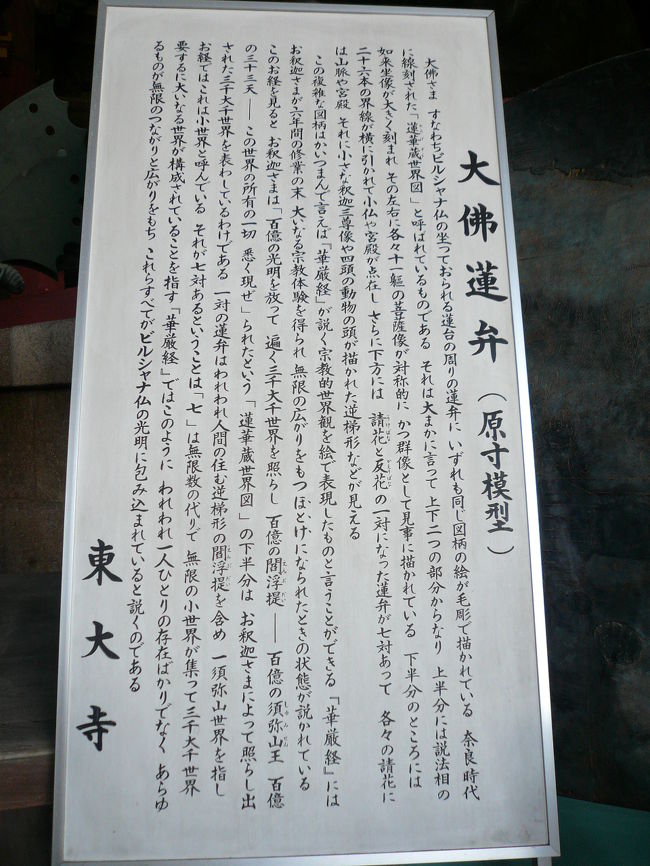 大佛蓮弁（原寸模型）
大佛さま すなわちビルシャナ仏の坐っておられる蓮台の周りの蓮弁に いずれも同じ図柄の絵が毛彫で描かれている 奈良時代
に線刻された「蓮華蔵世界図」と呼ばれているものである それは大まかに言って 上下二つの部分からなり 上半分には説法相の
如来坐像が大きく刻まれ その左右に各々十一軀の菩薩像が対称的に かつ群像として見事に描かれている 下半分のところには
二十六本の界線が横に引かれて小仏や宮殿が点在し さらに下方には 請花と反花の一対になった蓮弁が七対あって 各々の請花に
は山脈や宮殿 それに小さな釈迦三尊像や四頭の動物の頭が描かれた逆梯形などが見える
この複雑な図柄はかいつまんで言えば「華厳経」が説く宗教的世界観を絵で表現したものと言うことができる 『華厳経』には
お釈迦さまが六年間の修業の末 大いなる宗教体験を得られ 無限の広がりをもつ ほとけになられたときの状態が説かれている
このお経を見ると お釈迦さまは「百億の光明を放って 遍く三千大千世界を照らし 百億の閻浮提 ── 百億の須弥山王 百億
の三十三天 ── この世界の所有の一切 悉く現ぜ」られたという 「蓮華蔵世界図」の下半分は お釈迦さまによって照らし出
された三千大千世界を表わしているわけである 一対の蓮弁はわれわれ人間の住む逆梯形の閻浮提を含め 一須弥山世界を指し
お経ではこれは小世界と呼んでいる それが七対あるということは「七」は無限数の代りで 無限の小世界が集って三千大千世界
要するに大いなる世界が構成されていることを指す 「華厳経」ではこのように われわれ一人ひとりの存在ばかりでなく あらゆ
るものが無限のつながりと広がりをもち これらすべてがビルシャナ仏の光明に包み込まれていると説くのである
東大寺